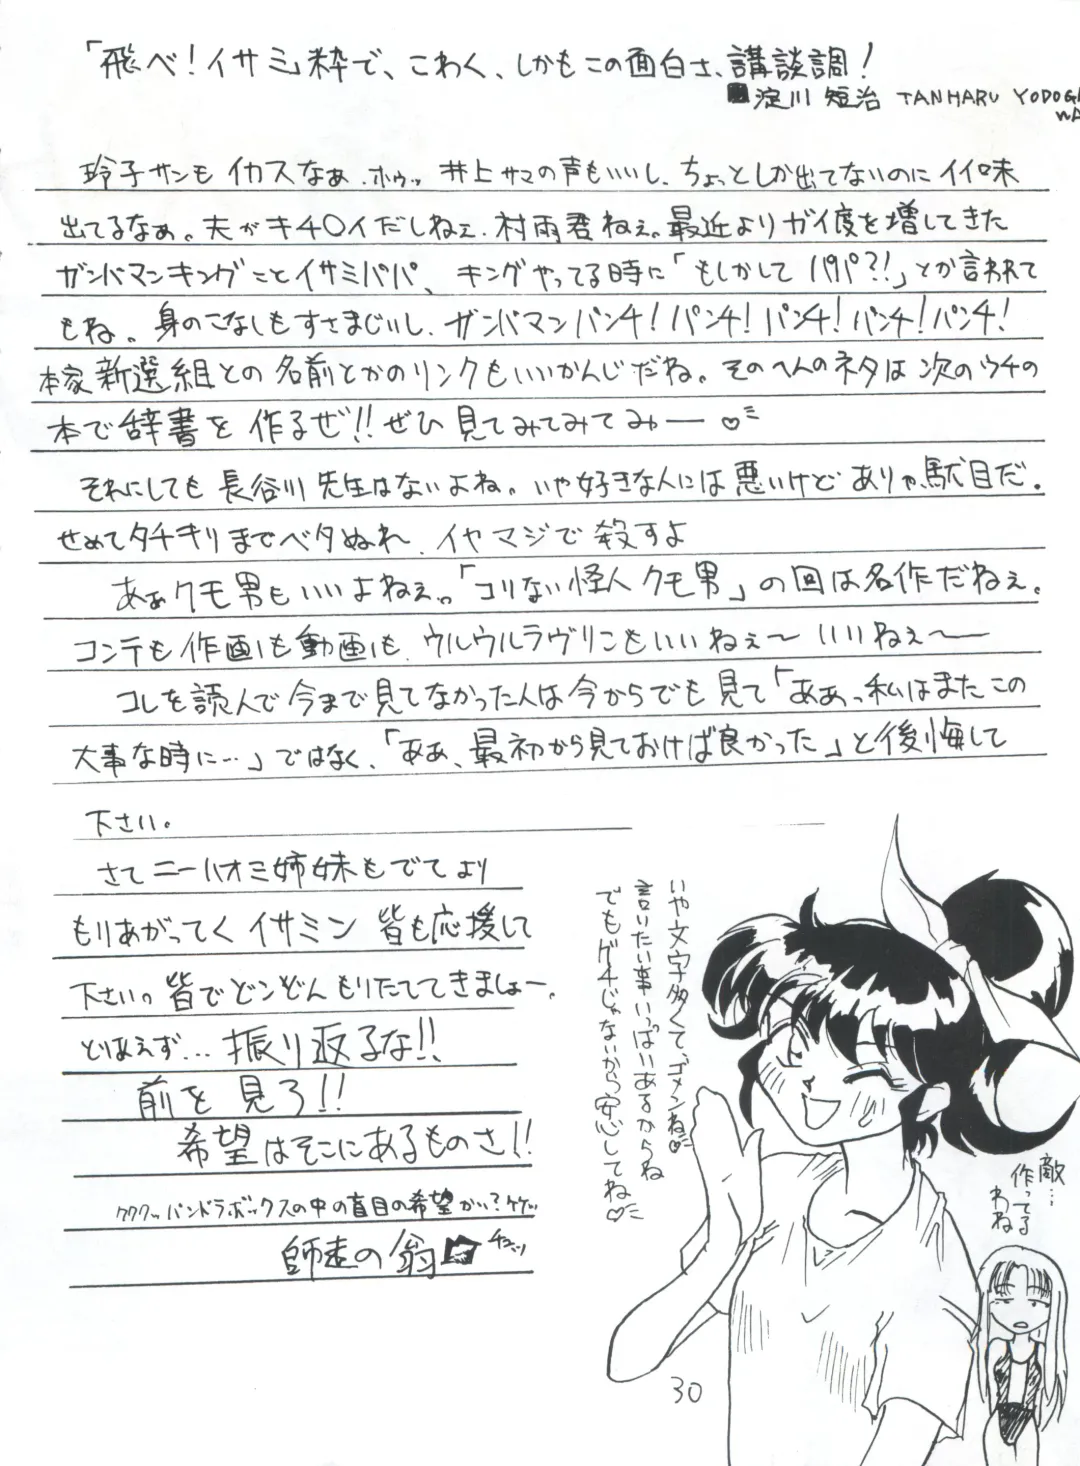 「飛べ!イサミ」粋で、こわく、しかもこの面白さ、講談調!
■淀川 短治 TANHARU YODOGAWA
玲子サンも イカスなぁ、ホゥッ 井上サマの声もいいし、ちょっとしか出てないのにイイ味
出てるなぁ。夫がキチ〇イだしねぇ、村雨君ねぇ。最近よりガイ度を増してきた
ガンバマンキングことイサミパパ、キングやってる時に「もしかして パパ?!」とか言われて
もね。身のこなしもすさまじいし、ガンバマンパンチ!パンチ!パンチ!パンチ!パンチ!
本家新選組との名前とかのリンクもいいかんじだね。そのへんのネタは次のウチの
本で辞書を作るぜ!!ぜひ見てみてみてみー♡
それにしても長谷川先生はないよね。いや好きな人には悪いけどありゃ駄目だ。
せめてタチキリまでベタぬれ、イヤマジで殺すよ
あぁクモ男もいいよねぇ。「コリない怪人クモ男」の回は名作だねぇ。
コンテも作画も動画も、ウルウルラヴリこもいいねぇ〜いいねぇ〜
コレを読んで今まで見てなかった人は今からでも見て「ああっ私はまたこの
大事な時に…」ではなく、「ああ、最初から見ておけば良かった」と後悔して
下さい。
さてニーハオミ姉妹もでてより
もりあがってくイサミン 皆も応援して
下さい。皆でどンどんもりたててきましょー。
とりあえず…振り返るな!!
前を見ろ!!
希望はそこにあるものさ!!
クククッパンドラボックスの中の盲目の希望かい?ケケッ
師走の翁 チュッ
いや文字多くて、ゴメンね♡
言いたい事いっぱいあるからね
でもグチじゃないから安心してね♡
敵…
作ってる
わね
30